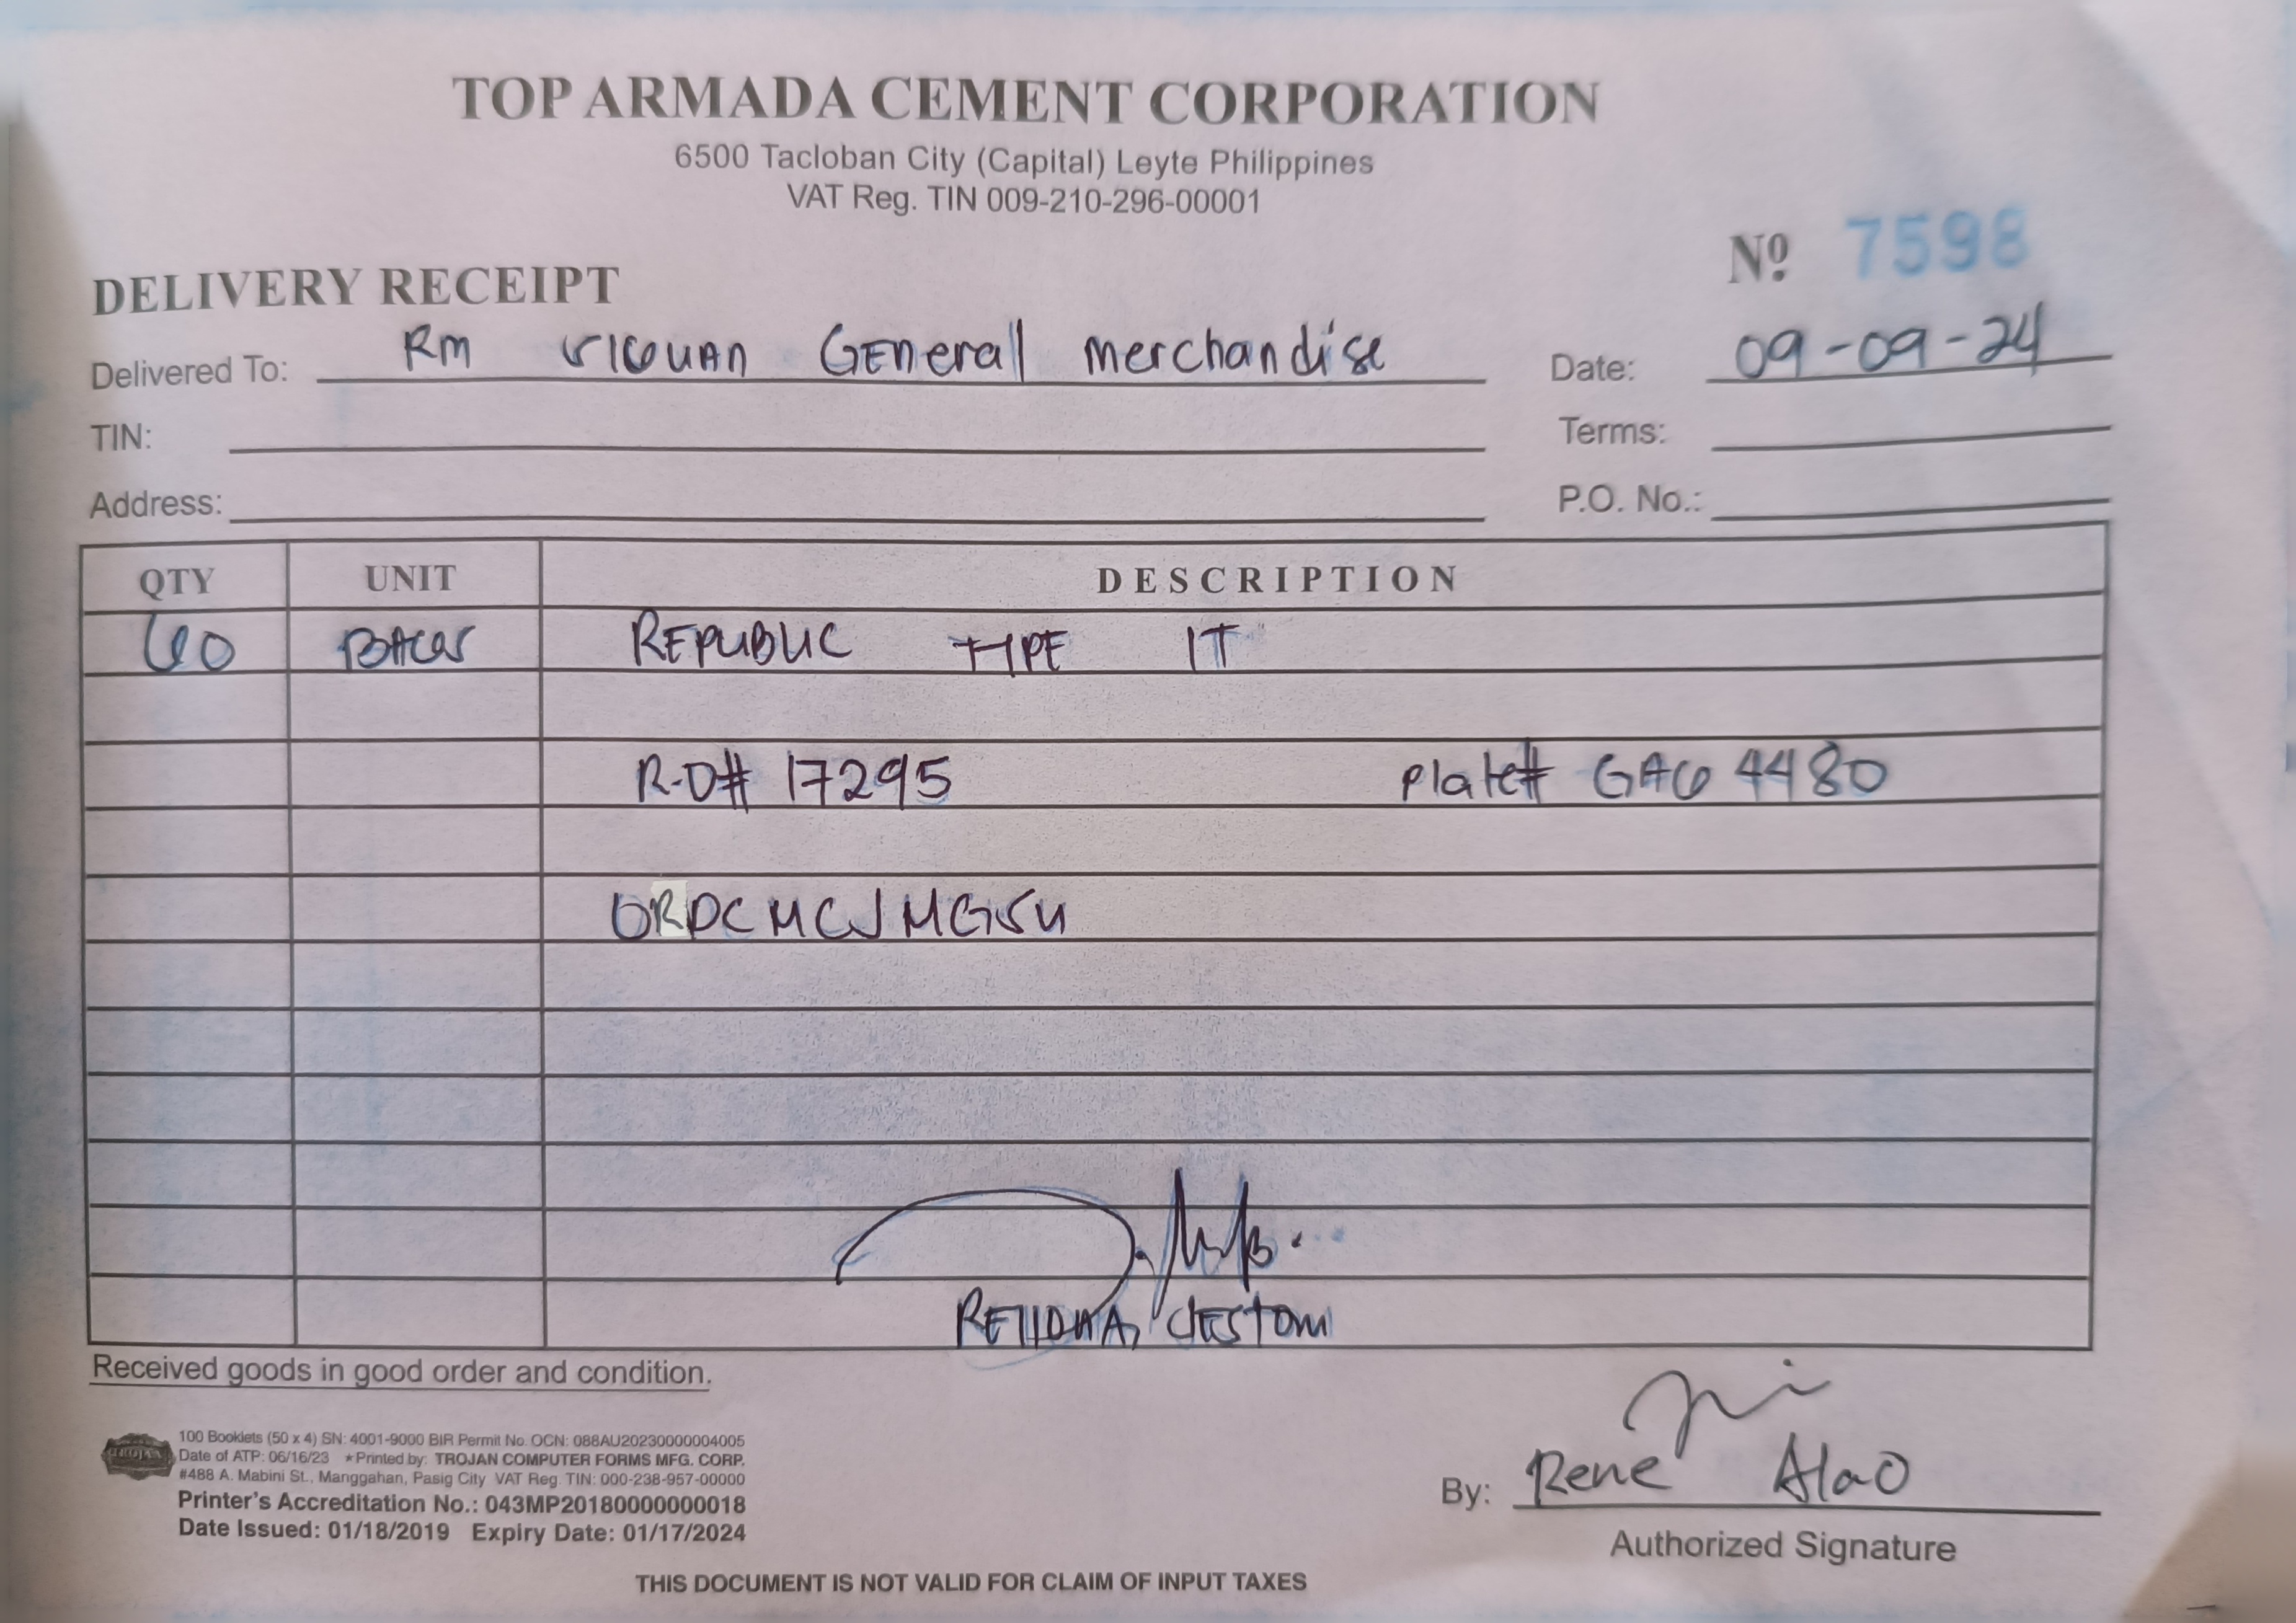 TOP ARMADA CEMENT CORPORATION
6500 Tacloban City (Capital) Leyte Philippines
VAT Reg. TIN 009-210-296-00001
Nº 7598
DELIVERY RECEIPT
Delivered To: RM General Merchandise Date: 09-09-24
TIN: Terms:
Address: P.O. No.:
QTY UNIT DESCRIPTION
60 BAGS REPUBLIC TYPE 1T
R.O# 17295 Plate# GAG 4480
ORDCMCJMGSU
JESTONI
Received goods in good order and condition.
TROJAN
100 Booklets (50 x 4) SN: 4001-9000 BIR Permit No. OCN: 088AU20230000004005
Date of ATP: 06/16/23 ★Printed by: TROJAN COMPUTER FORMS MFG. CORP.
#488 A. Mabini St., Manggahan, Pasig City VAT Reg. TIN: 000-238-957-00000
Printer's Accreditation No.: 043MP20180000000018
Date Issued: 01/18/2019 Expiry Date: 01/17/2024
By: Rene Alao
Authorized Signature
THIS DOCUMENT IS NOT VALID FOR CLAIM OF INPUT TAXES